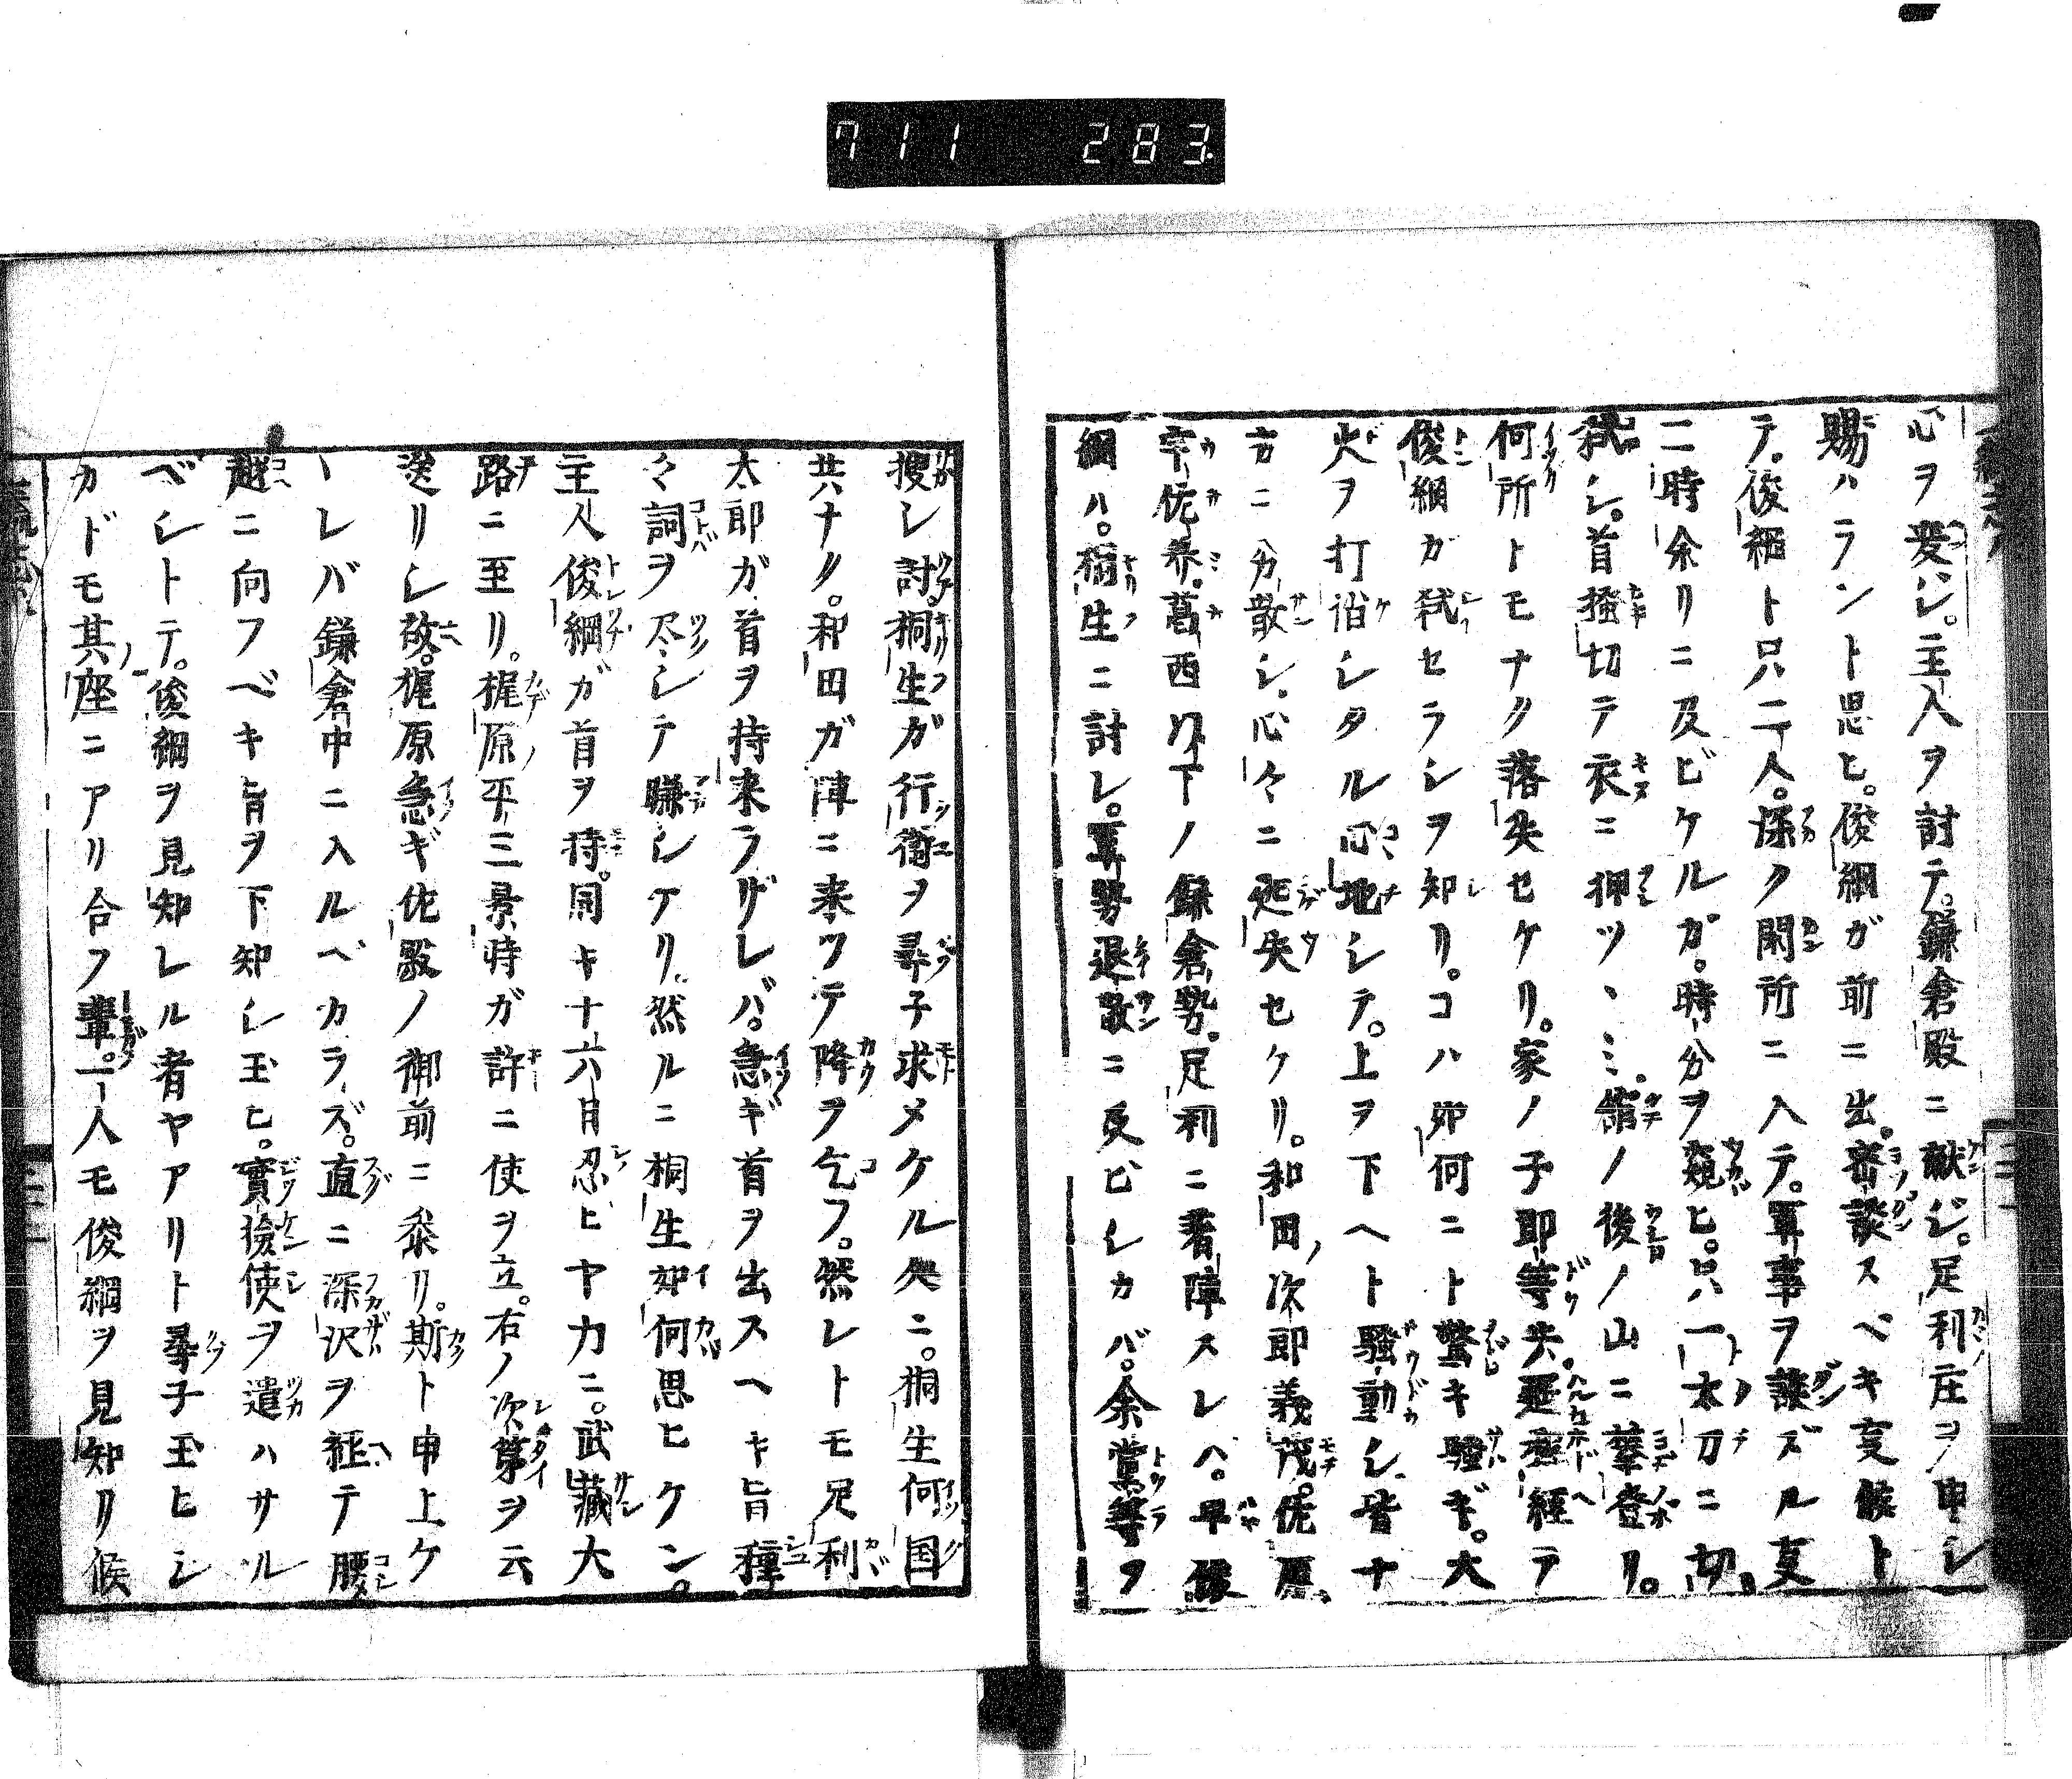 711 283
心ヲ変ジ。主人ヲ討テ。鎌倉殿ニ献ジ。足利庄ヲ申シ
賜ハラント思ヒ。俊綱ガ前ニ出。密談スベキ叓候ト
テ。俊綱ト只二人。深ク閑所ニ入テ。軍事ヲ談ズル叓
二時余リニ及ビケルガ。時分ヲ窺ヒ。只一太刀ニ切
弑シ。首掻切テ衣ニ押ツヽミ。館ノ後ノ山ニ攀登リ。
何所トモナク落失セケリ。家ノ子郎等失。程経テ
俊綱カ弑セラレシヲ知リ。コハ如何ニト驚キ騒ギ。大
火ヲ打消シタル心地シテ。上ヲ下ヘト騒動シ、皆ナ
方ニ分散シ、心々ニ迯失セケリ。和田次郎義茂。佐原。
宇佐美。葛西以下ノ鎌倉勢。足利ニ着陣スレバ。早俊
綱ハ。桐生ニ討レ。軍勢退散ニ及ビシカバ。余黨等ヲ
搜シ討。桐生ガ行衞ヲ尋子求メケル処ニ。桐生何国
共ナク。和田ガ陣ニ来ツテ降ヲ乞フ。然レトモ足利
太郎ガ首ヲ持来ラザレバ。急ギ首ヲ出スヘキ旨種
々詞ヲ尽シテ賺シケリ。然ルニ桐生如何思ヒケン。
主人俊綱ガ首ヲ持。同キ十六日忍ビヤカニ。武藏大
路ニ至リ。梶原平三景時ガ許ニ使ヲ立。右ノ次第ヲ云
送リシ故。梶原急ギ佐殿ノ御前ニ参リ。斯ト申上ケ
ーレバ鎌倉中ニ入ルベカラズ。直ニ深沢ヲ経テ腰
越ニ向フベキ旨ヲ下知シ玉ヒ。實撿使ヲ遣ハサル
ベシトテ。俊綱ヲ見知レル者ヤアリト尋子玉ヒシ
カドモ其座ニアリ合フ輩。一人モ俊綱ヲ見知リ候